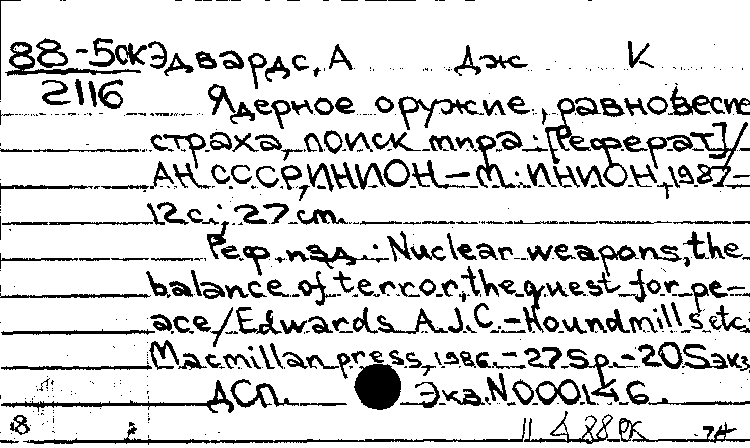 88-5ск Эдвардс, А Дж К
2116
Ядерное оружие, равновесие
страха, поиск мира: [Реферат] /
АН СССР, ИНИОН. — М.: ИНИОН, 1987 —
12с.; 27cm.
Реф. изд.: Nuclear weapons, the
balance of terror, the quest for pe-
ace / Edwards A.J.C. - Houndmills etc.
Macmillan press, 1986. - 275p. - 205экз
ДСП. Экз. N000146.
8 11 4 88 РК